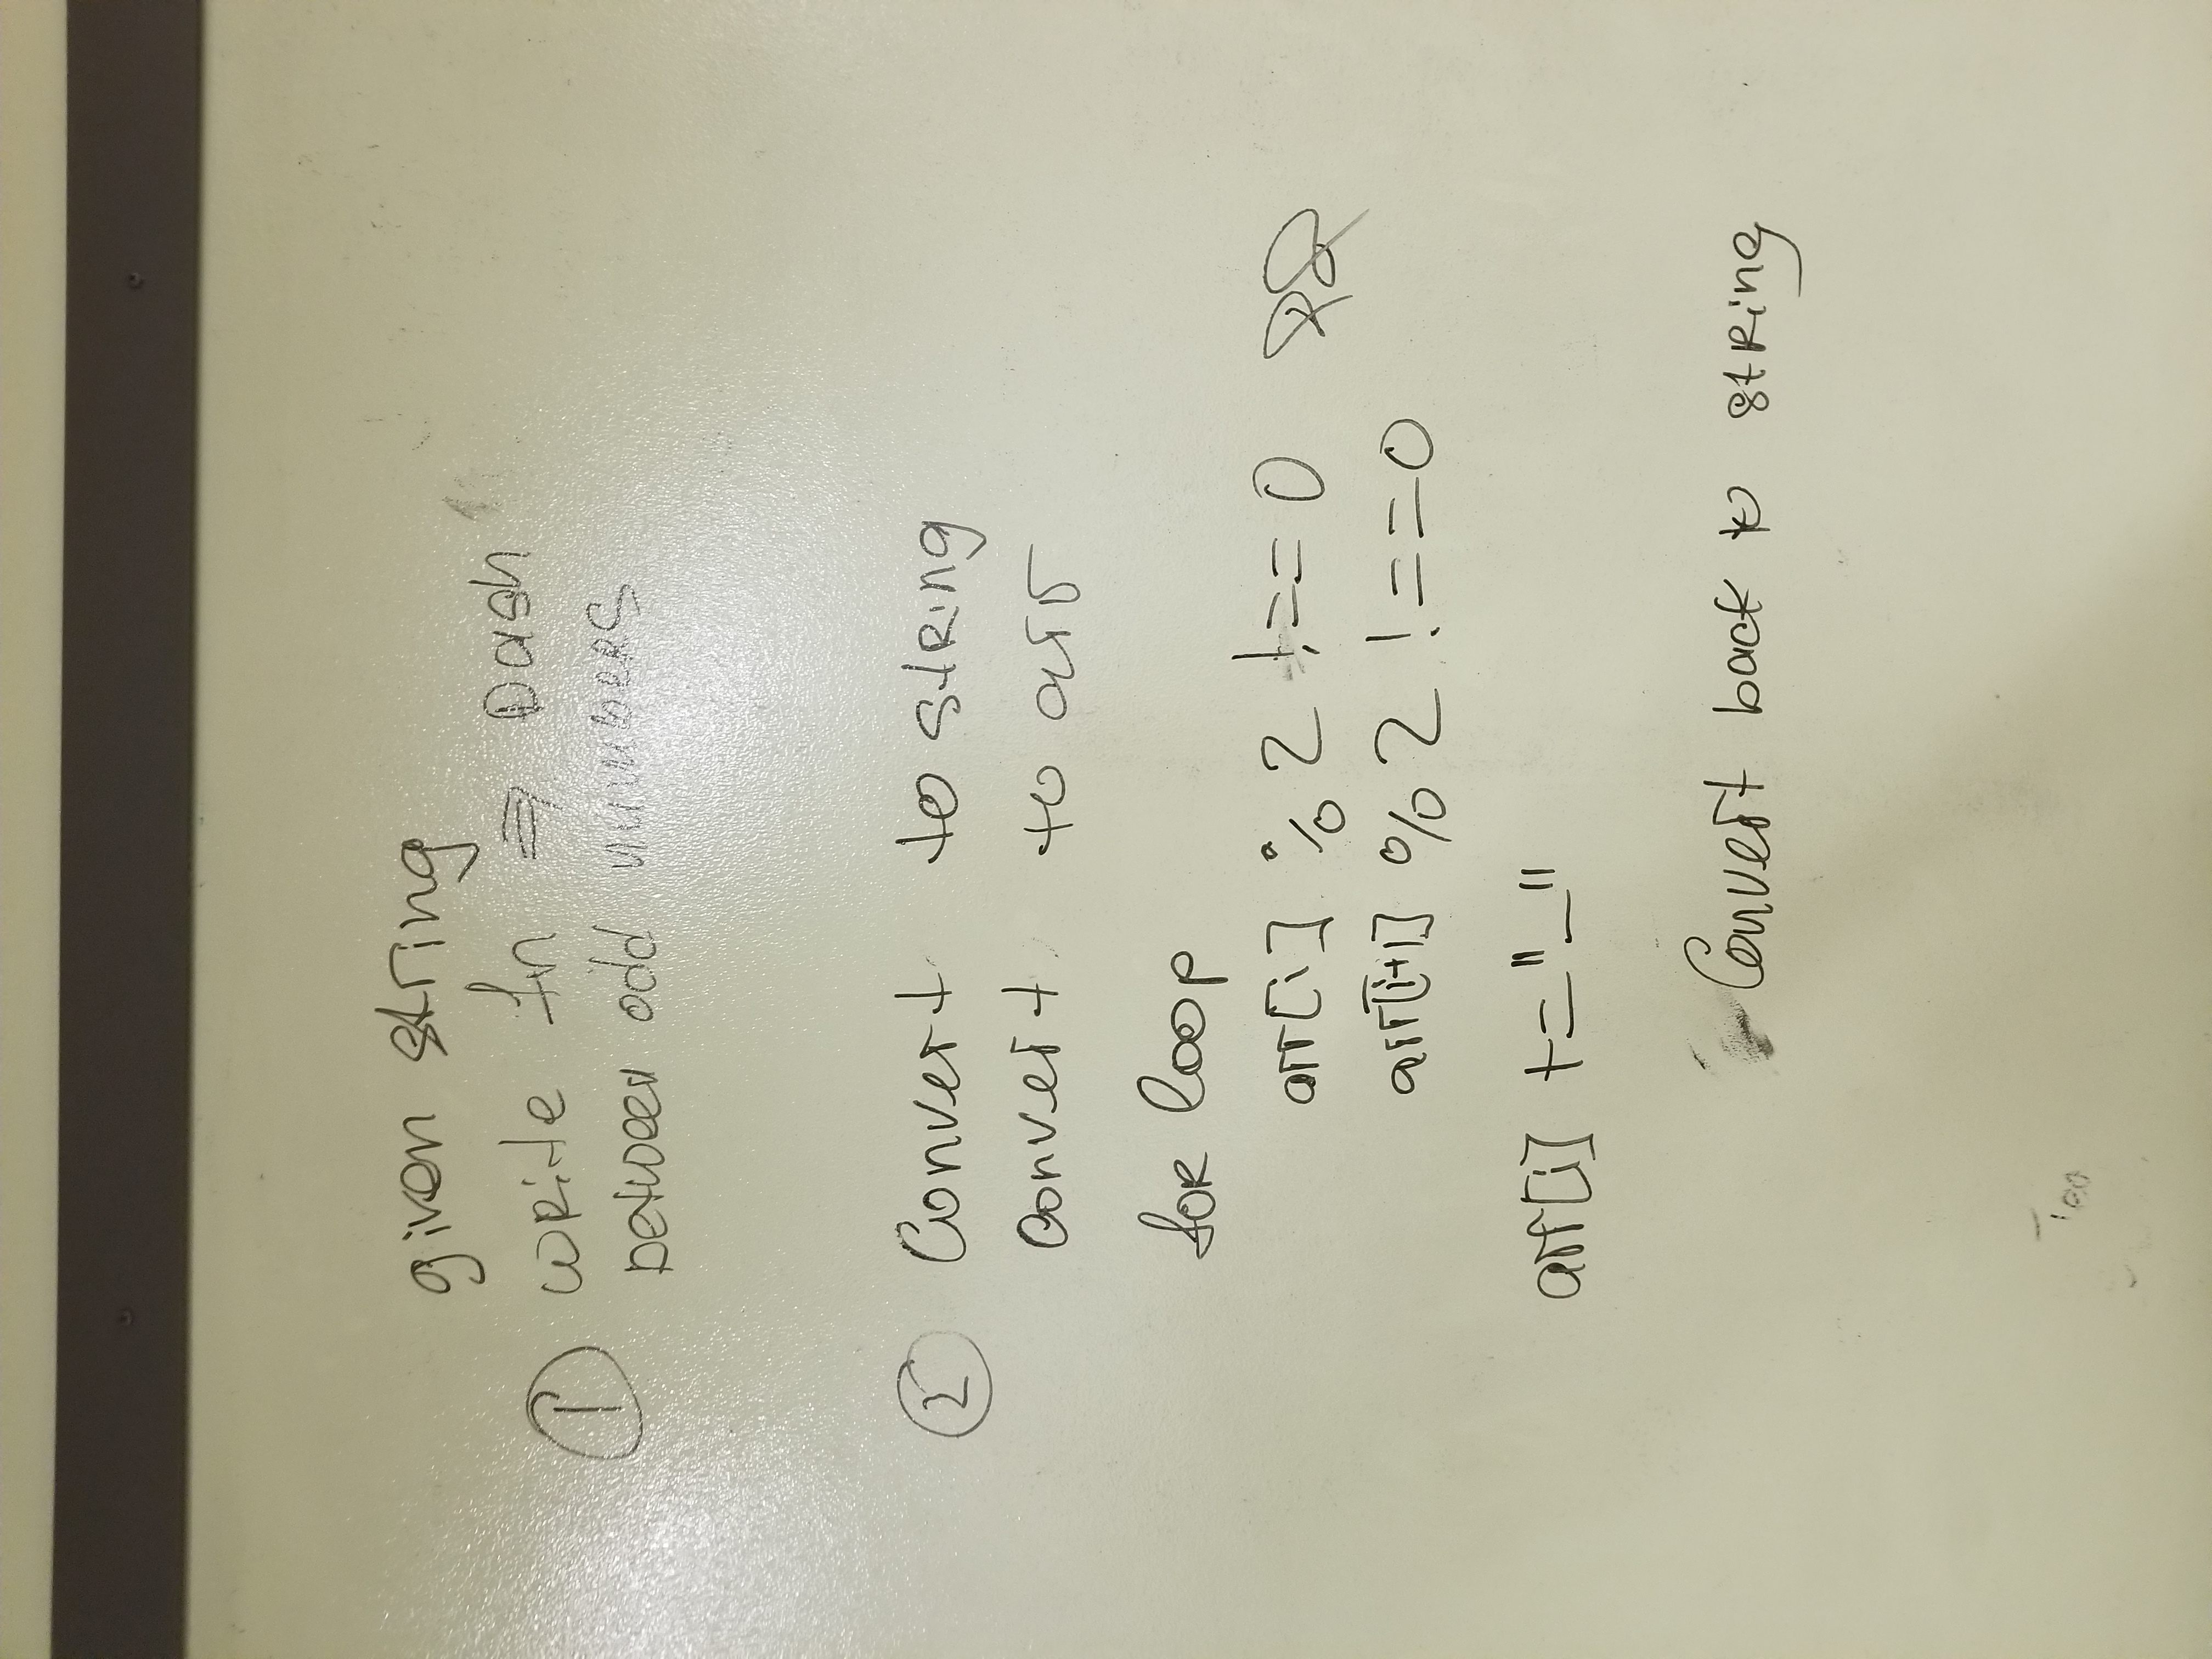 given string
① write fn ⇒ Dash
between odd numbers
② Convert to string
Convert to arr
for loop
arr[i] % 2 !== 0
arr[i+1] % 2 !== 0
arr[i] += "-"
Convert back to string